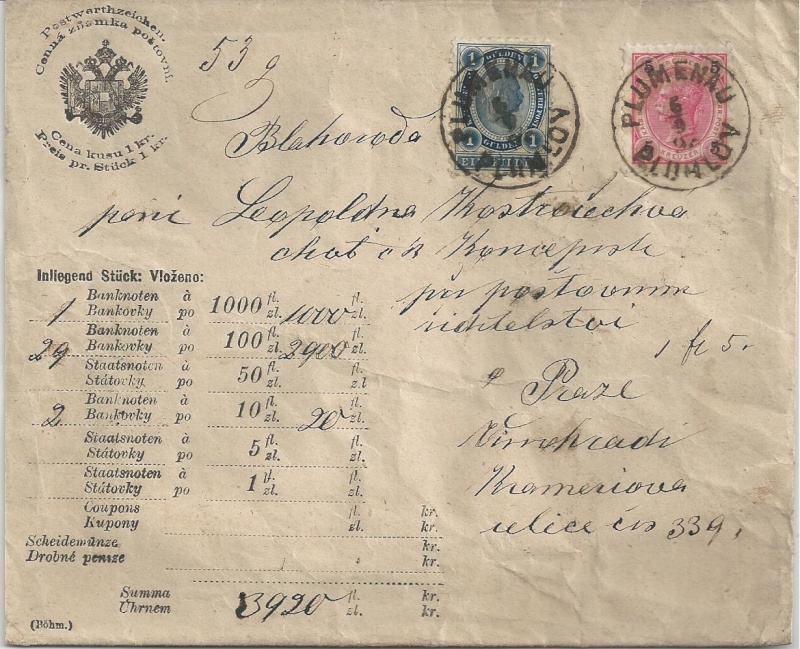 Postwerthzeichen.
Cenná známka poštovní.
Cena kusu 1 kr.
Preis pr. Stück 1 kr.
53 g
1 GULDEN 1
1 GULDEN 1
PLUMENAU
PLUMLOV
5 5
PLUMENAU
6
9
PLUMLOV
Blahorodá
paní Leopoldina
choť c k Koncepisty
při poštovním
ředitelství
1 fl 5
v Praze
Vinohradi
Krameriova
ulice čís 339.
Inliegend Stück: Vloženo:
1 Banknoten à 1000 fl. 1000 fl.
Bankovky po zl. zl.
29 Banknoten à 100 fl. 2900 fl.
Bankovky po zl. zl.
Staatsnoten à 50 fl. fl.
Státovky po zl. z.l
2 Banknoten à 10 fl. 20 fl.
Bankovky po zl. zl.
Staatsnoten à 5 fl. fl.
Státovky po zl. zl.
Staatsnoten à 1 fl. fl.
Státovky po zl. zl.
Coupons fl. kr.
Kupony zl. kr.
Scheidemünze kr.
Drobné peníze kr.
Summa 3920 fl. kr.
Úhrnem zl. kr.
(Böhm.)